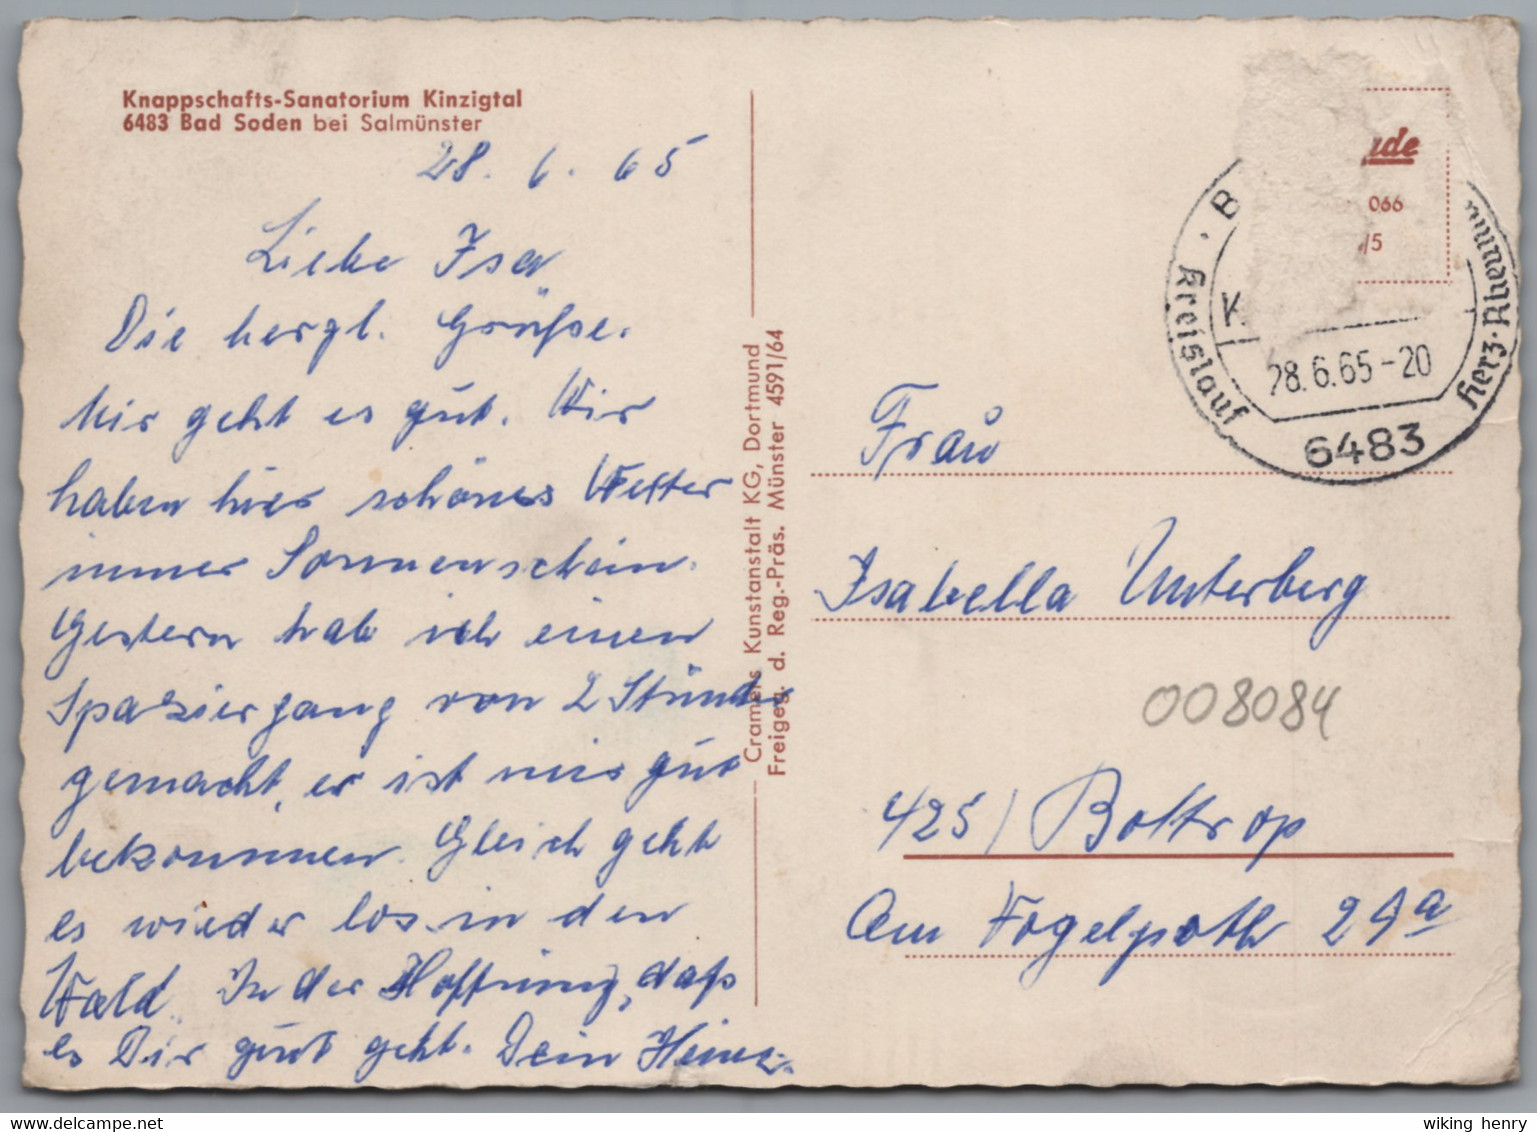 Knappschafts-Sanatorium Kinzigtal
6483 Bad Soden bei Salmünster
28. 6. 65
Liebe Isa
Die herzl. Grüße.
Mir geht es gut. Wir
haben hier schönes Wetter
immer Sonnenschein.
Gestern hab ich einen
Spaziergang von 2 Stunde
gemacht, er ist mir gut
bekommen. Gleich geht
es wieder los in den
Wald. In der Hoffnung, daß
es Dir gut geht. Dein Heinz.
Cramers Kunstanstalt KG, Dortmund
Freigeg. d. Reg.-Präs. Münster 4591/64
ude
066
/5
B
K
Kreislauf
Herz · Rheuma
28.6.65-20
6483
Frau
Isabella Unterberg
008084
425 / Bottrop
Am Vogelpoth 29a
wiking henry